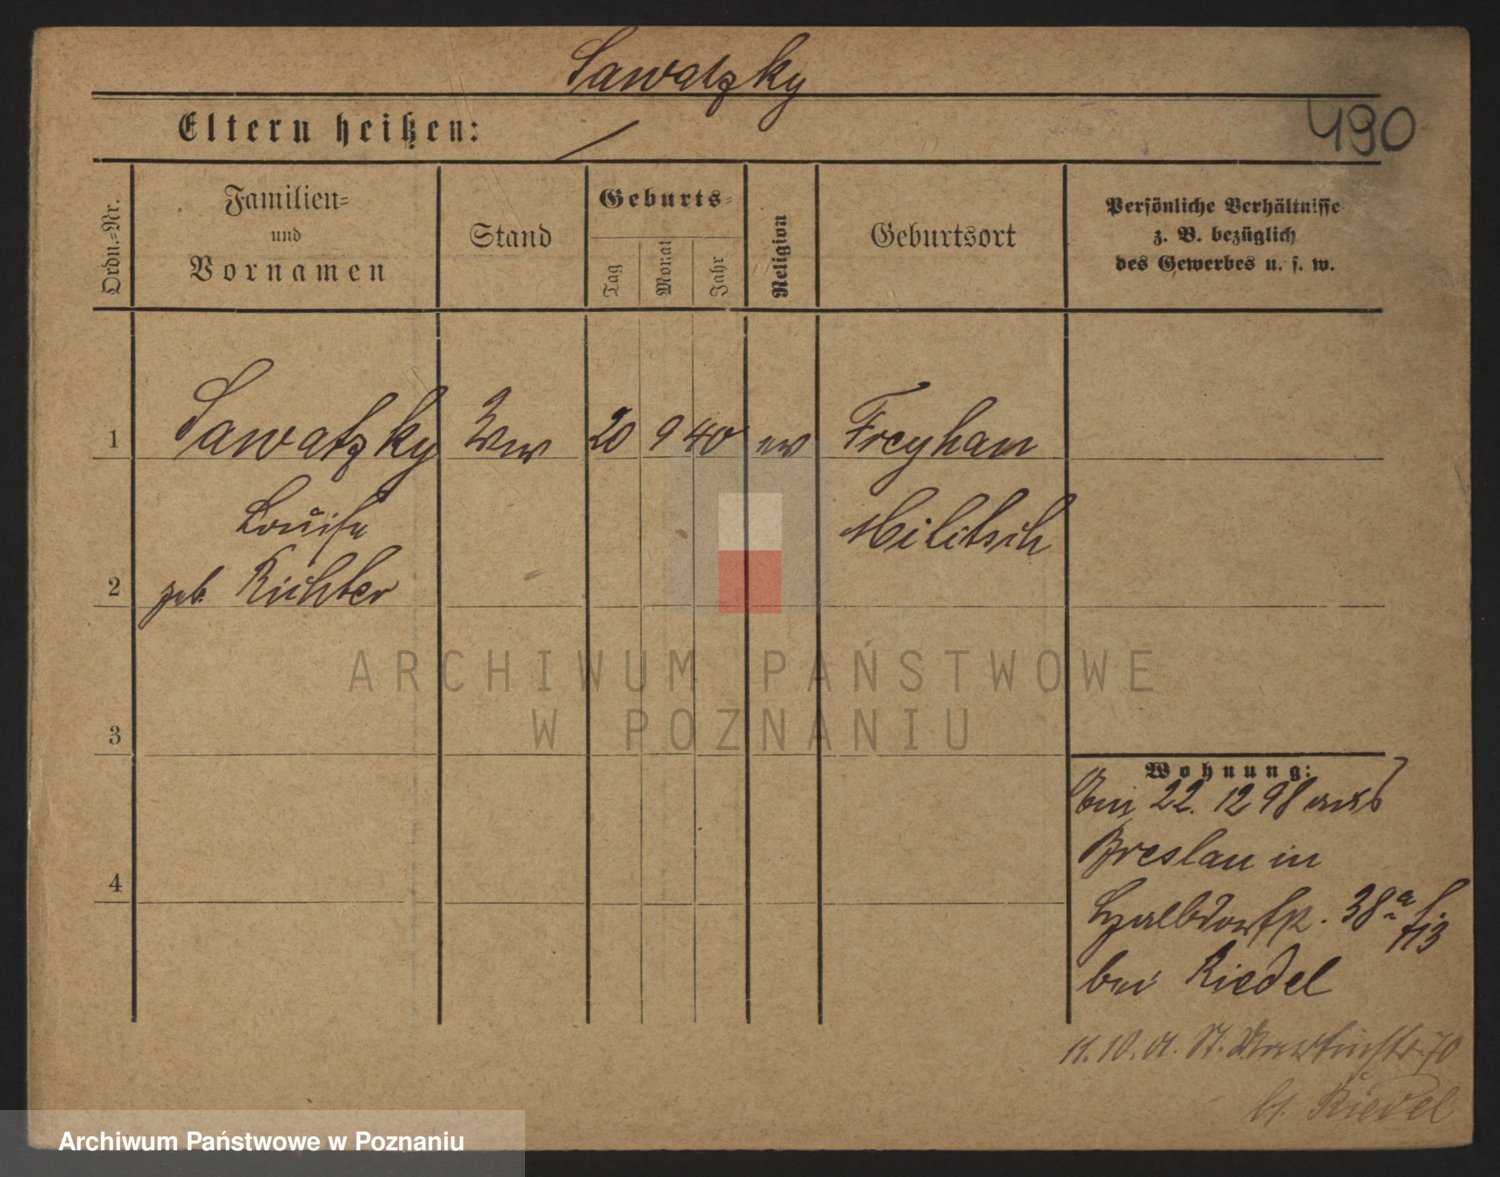 Sawatzky
490
Eltern heißen:
Ordn.-Nr.
Familien-
und
Vornamen
Stand
Geburts-
Tag
Monat
Jahr
Religion
Geburtsort
Persönliche Verhältnisse
z. B. bezüglich
des Gewerbes u. s. w.
1 Sawatzky Ww 20 9 40 ev Freyhan
Louise Militsch
2 geb. Richter
3
4
Wohnung:
Am 22. 12 98 aus
Breslau in
38a
bei Riedel
11. 10. 01. St. Martinstr. 70
b/. Riedel
ARCHIWUM PAŃSTWOWE
W POZNANIU
Archiwum Państwowe w Poznaniu